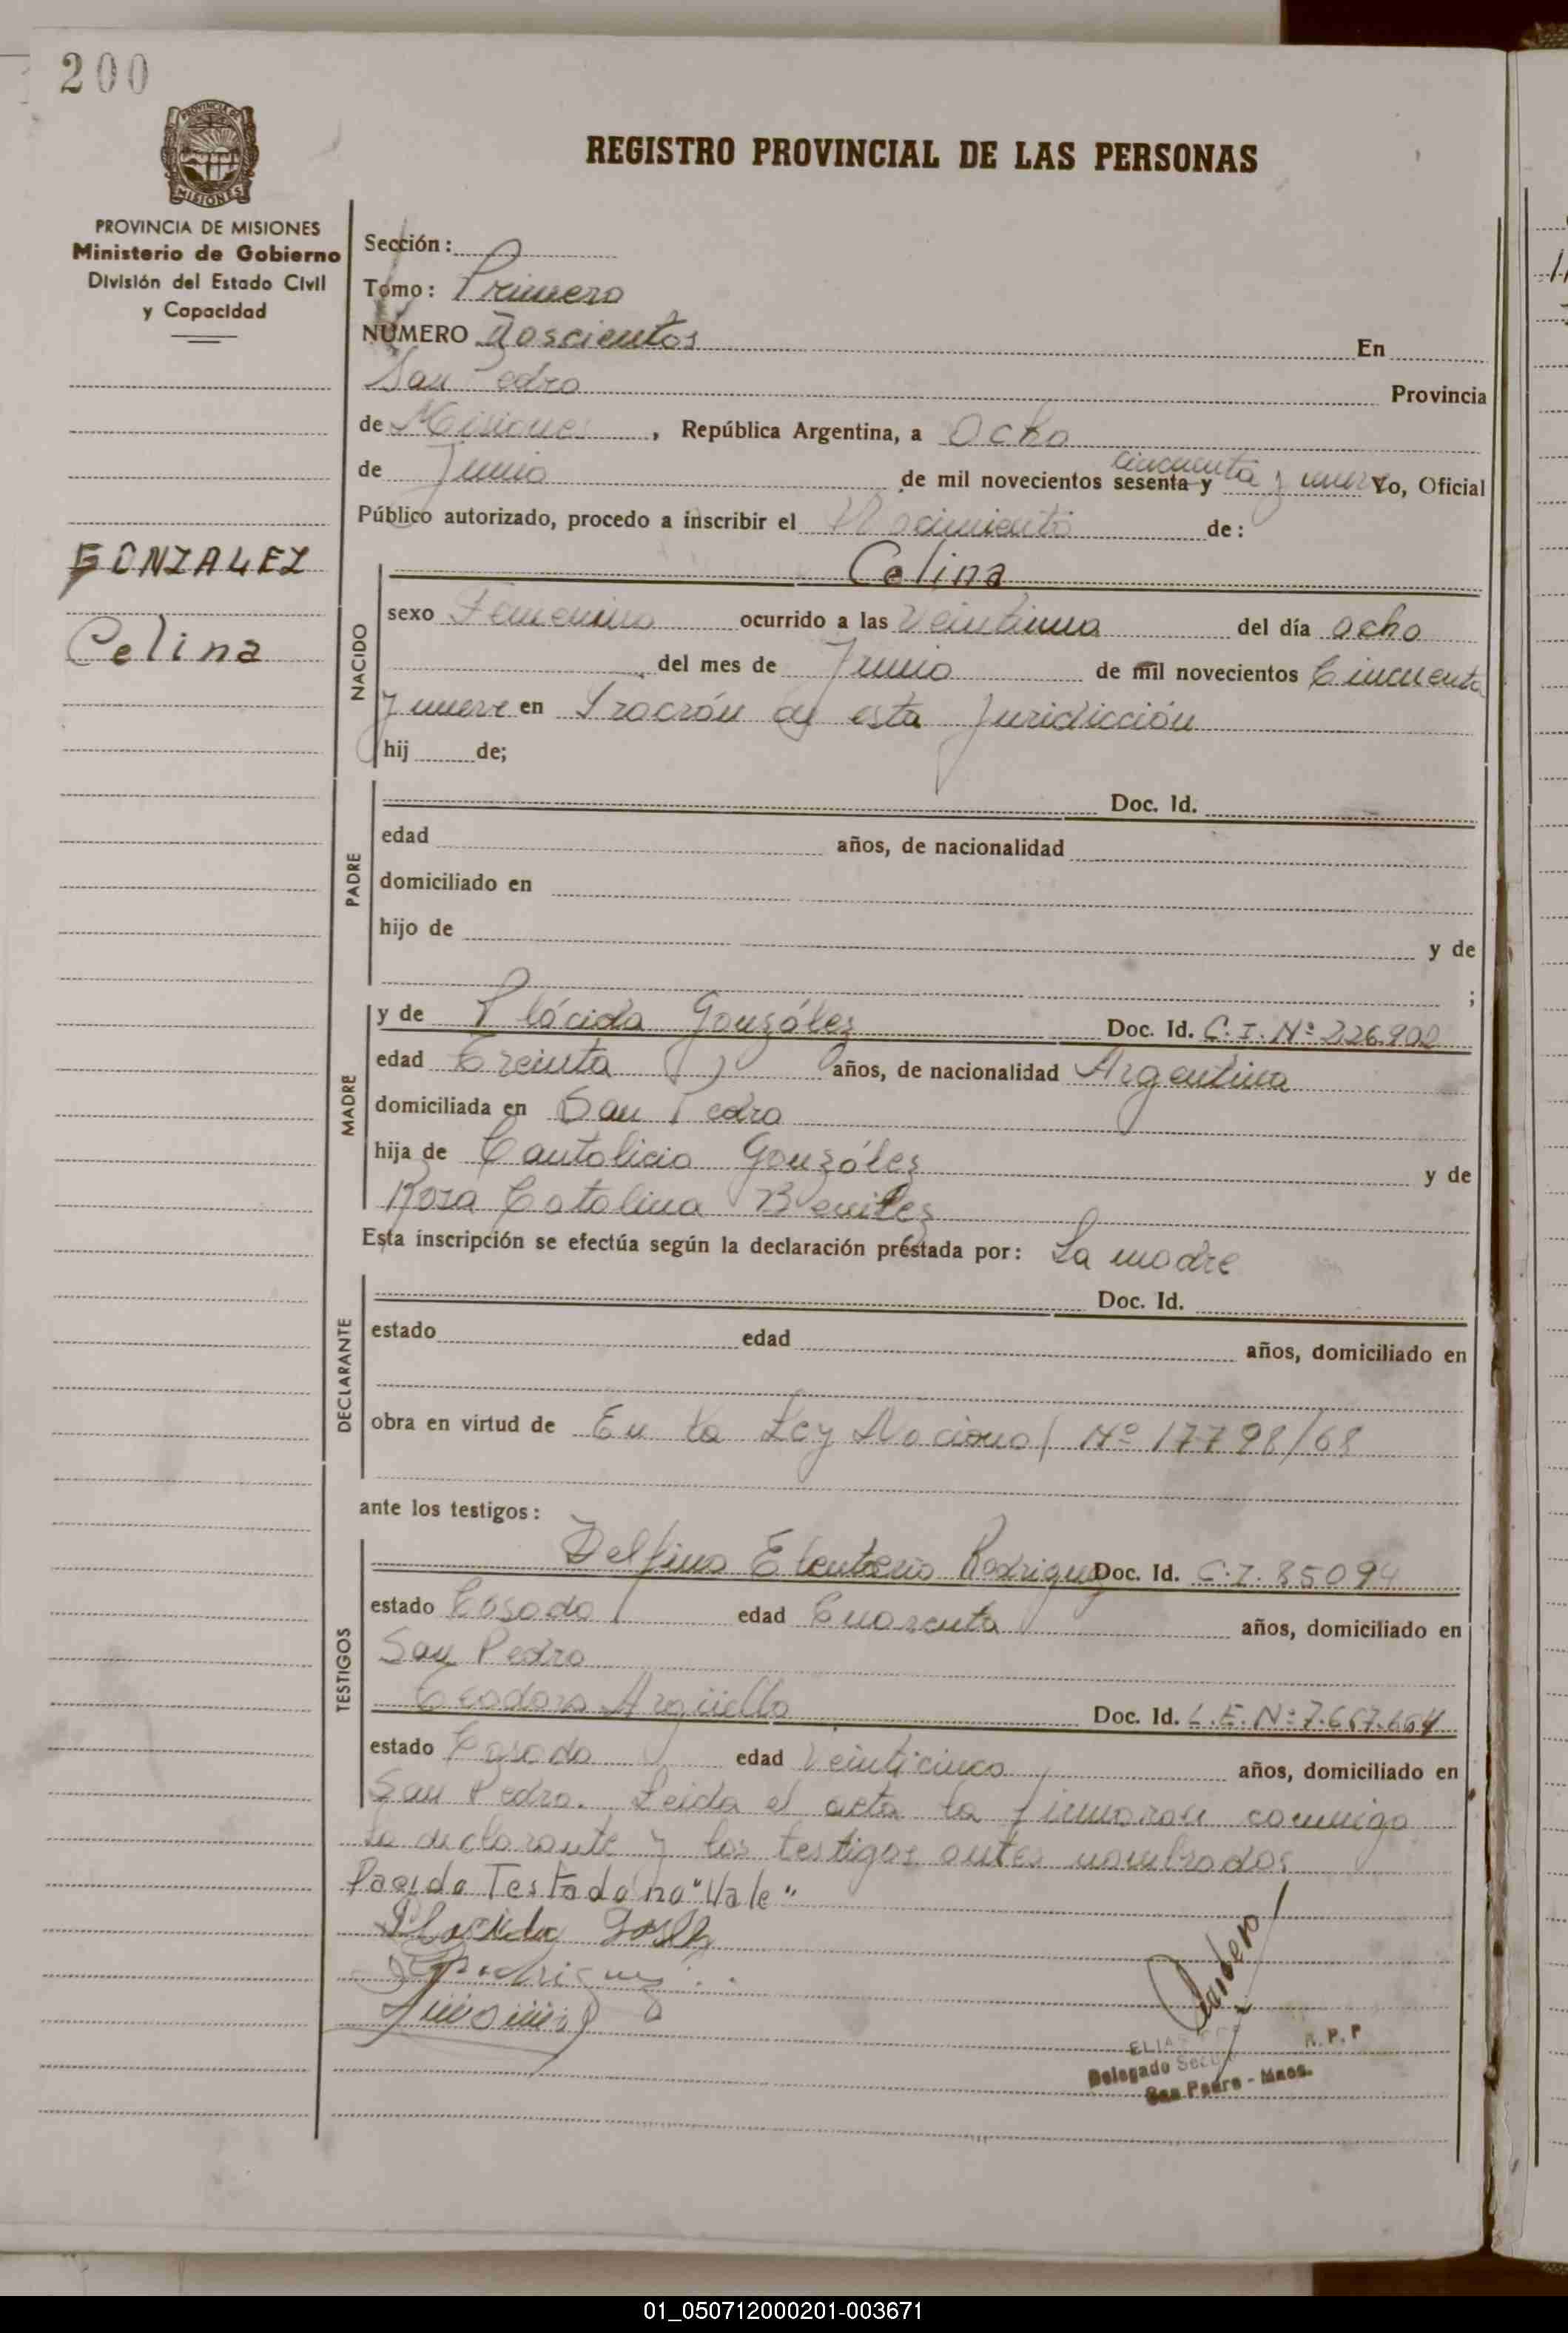 200
PROVINCIA DE MISIONES
REGISTRO PROVINCIAL DE LAS PERSONAS
PROVINCIA DE MISIONES
Ministerio de Gobierno
División del Estado Civil
y Capacidad
GONZALEZ
Celina
Sección:
Tomo: Primero
NÚMERO Doscientos En
San Pedro Provincia
de Misiones, República Argentina, a Ocho
cincuenta
de Junio de mil novecientos sesenta y y nueve Yo, Oficial
Público autorizado, procedo a inscribir el Nacimiento de:
Celina
NACIDO
sexo Femenino ocurrido a las Veintiuna del día ocho
del mes de Junio de mil novecientos Cincuenta
y nueve en de esta Juridicción
hij de;
PADRE
Doc. Id.
edad años, de nacionalidad
domiciliado en
hijo de y de
;
MADRE
y de Plácida González Doc. Id. C.I. Nº 226.902
edad Treinta años, de nacionalidad Argentina
domiciliada en San Pedro
hija de Cantalicio González y de
Rosa Catalina Benitez
Esta inscripción se efectúa según la declaración prestada por: La madre
DECLARANTE
Doc. Id.
estado edad años, domiciliado en
obra en virtud de En la Ley Nacional Nº 17798/68
ante los testigos:
TESTIGOS
Delfino Eleuterio Rodriguez Doc. Id. C.I. 85094
estado Casado edad Cuarenta años, domiciliado en
San Pedro
Teodoro Argüello Doc. Id. L.E. Nº 7.667.664
estado Casado edad Veinticinco años, domiciliado en
San Pedro. Leida el acta la firmaron conmigo
la declarante y los testigos antes nombrados
Testado no "Vale"
Delegado
R. P. P
San Pedro - Mnes.
01_050712000201-003671